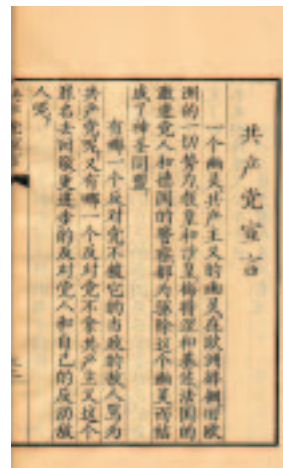 共产党宣言
一个幽灵共产主义的幽灵在欧洲徘徊旧欧
洲的一切势力教皇和沙皇梅特涅和基佐法国的
激进党人和德国的警察都为驱除这个幽灵而结
成了神圣同盟
有哪一个反对党不被它的当政的敌人骂为
共产党呢又有哪一个反对党不拿共产主义这个
罪名去回敬更进步的反对党人和自己的反动敌
人呢